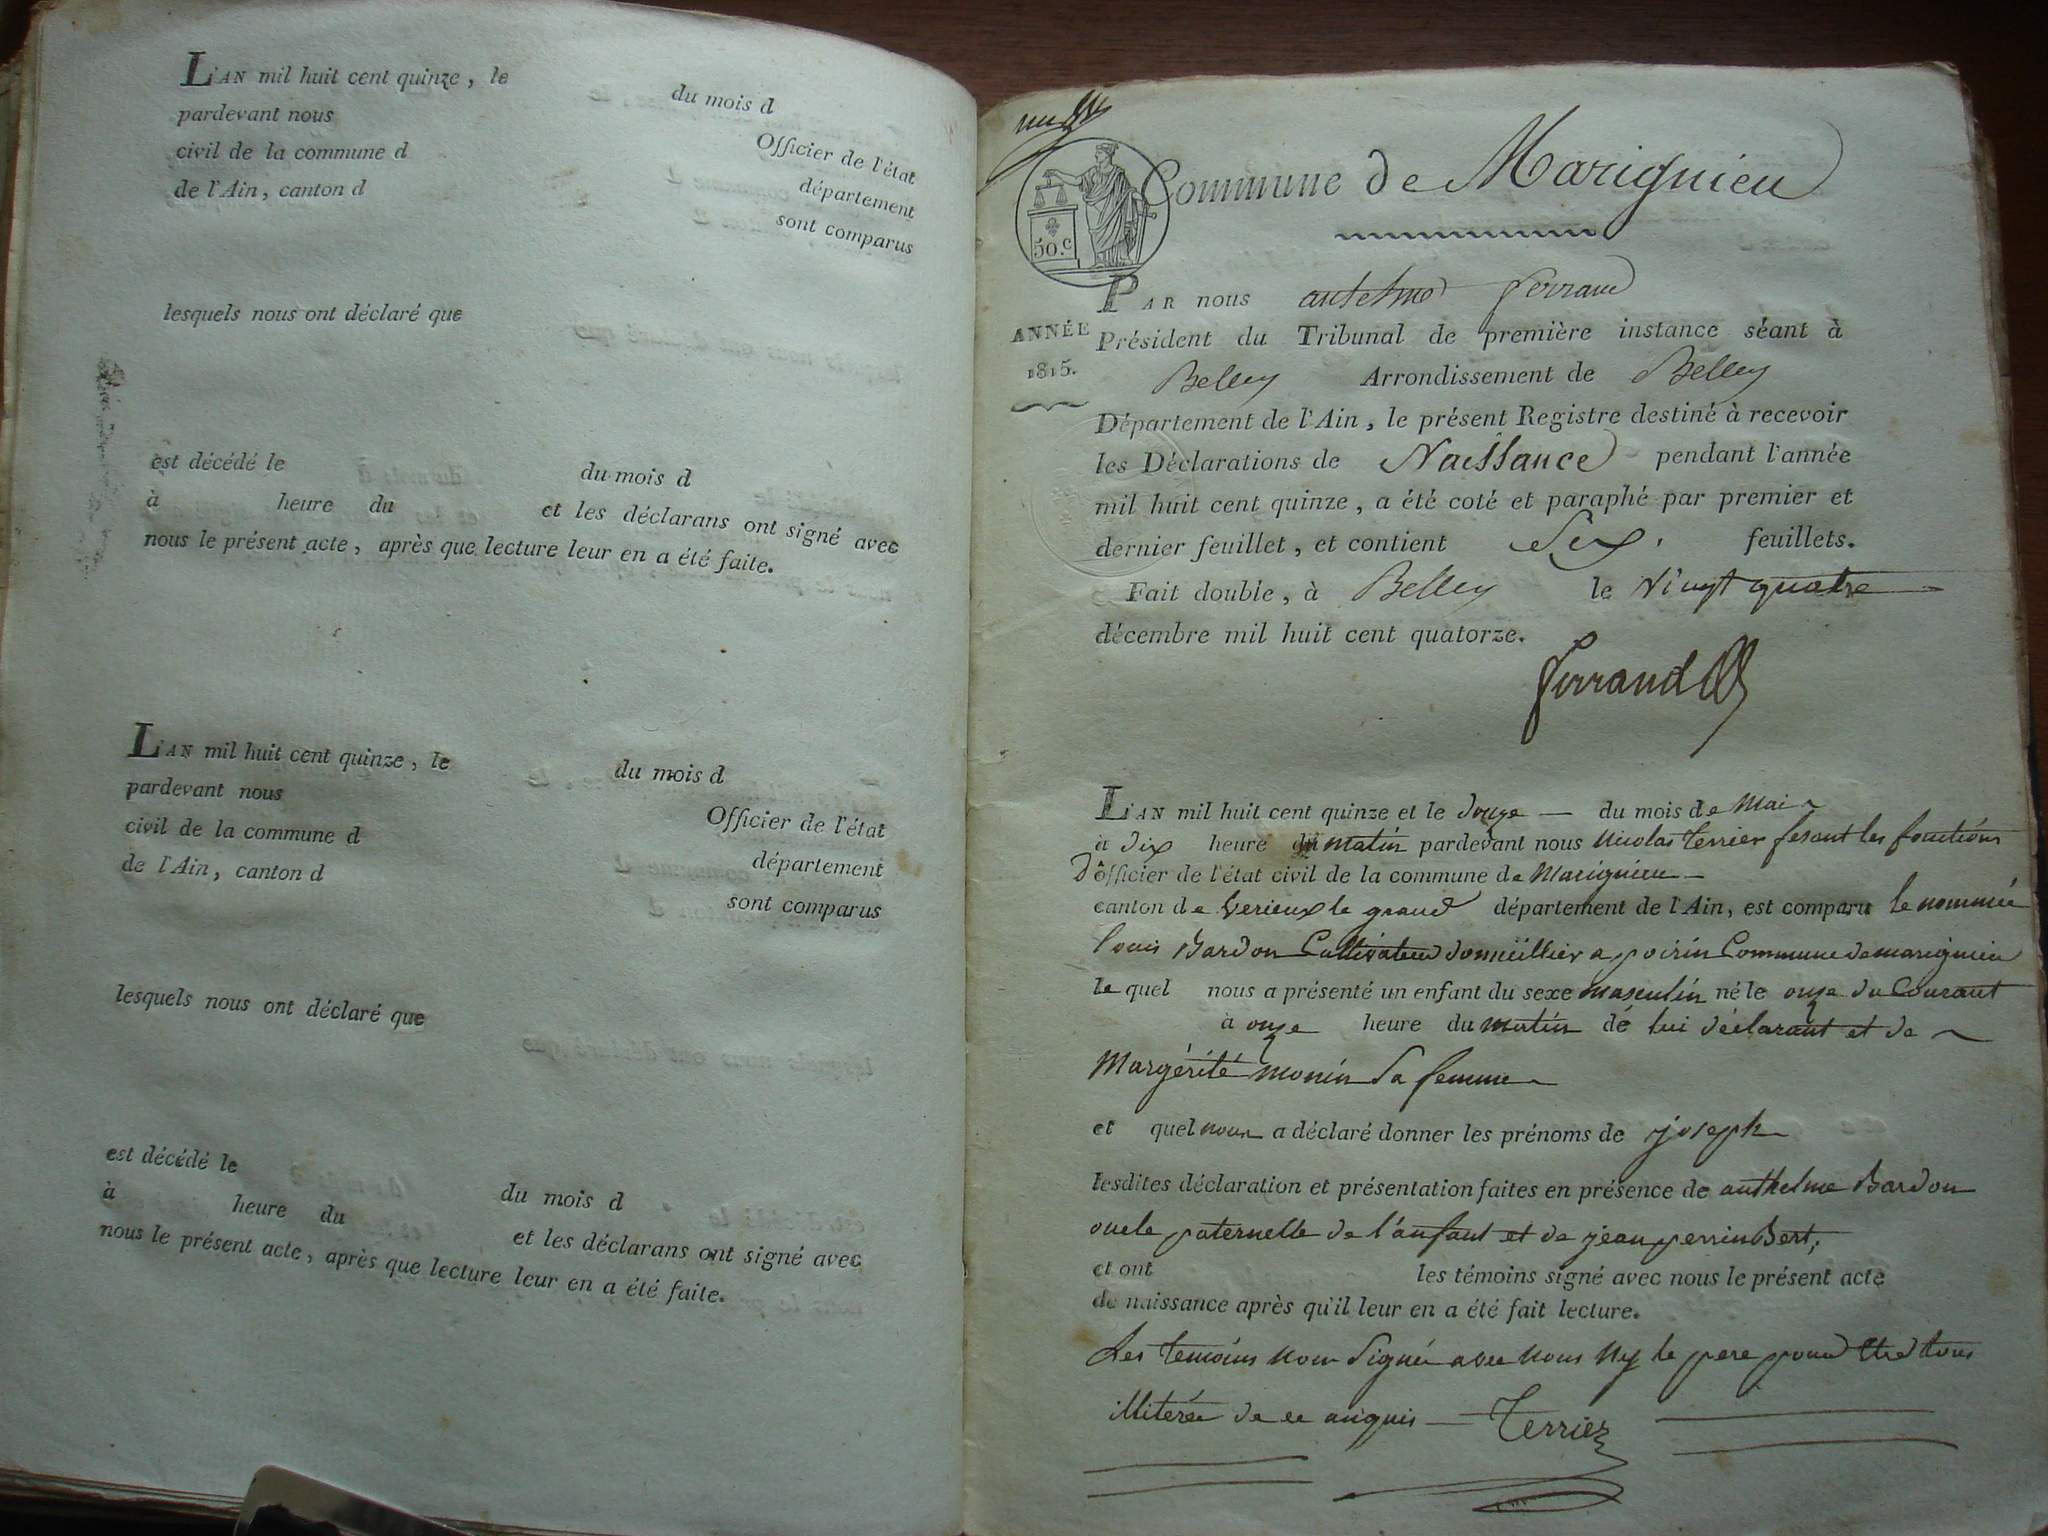 L'AN mil huit cent quinze, le du mois d
pardevant nous Officier de l'état
civil de la commune d département
de l'Ain, canton d sont comparus
lesquels nous ont déclaré que
est décédé le du mois d
à heure du et les déclarans ont signé avec
nous le présent acte, après que lecture leur en a été faite.
L'AN mil huit cent quinze, le du mois d
pardevant nous Officier de l'état
civil de la commune d département
de l'Ain, canton d sont comparus
lesquels nous ont déclaré que
est décédé le du mois d
à heure du et les déclarans ont signé avec
nous le présent acte, après que lecture leur en a été faite.
Commune de Marignieu
50.c
PAR nous antelme ferrand
ANNÉE
1815.
Président du Tribunal de première instance séant à
Belley Arrondissement de Belley
Département de l'Ain, le présent Registre destiné à recevoir
les Déclarations de Naissance pendant l'année
mil huit cent quinze, a été coté et paraphé par premier et
dernier feuillet, et contient Six. feuillets.
Fait double, à Belley le vingt quatre
décembre mil huit cent quatorze.
ferrand
L'AN mil huit cent quinze et le douze du mois de Mai
à dix heure du matin pardevant nous nicolas terrier fesant les fonctions
d'officier de l'état civil de la commune de Marignieu
canton de Verieux le grand département de l'Ain, est comparu le nommée
louis Bardon Cultivateur domicillier a poirin Commune de marignieu
le quel nous a présenté un enfant du sexe masculin né le onze du Courant
à onze heure du matin dé lui déclarant et de
Margérité monin sa femme
et quel nous a déclaré donner les prénoms de joseph
lesdites déclaration et présentation faites en présence de anthelme Bardon
oncle paternelle de l'anfant et de jean perrin Bert,
et ont les témoins signé avec nous le présent acte
de naissance après qu'il leur en a été fait lecture.
Les temoins non Signée avec nous ny le pere pour Etre tous
illiterée de ce anquis Terrier